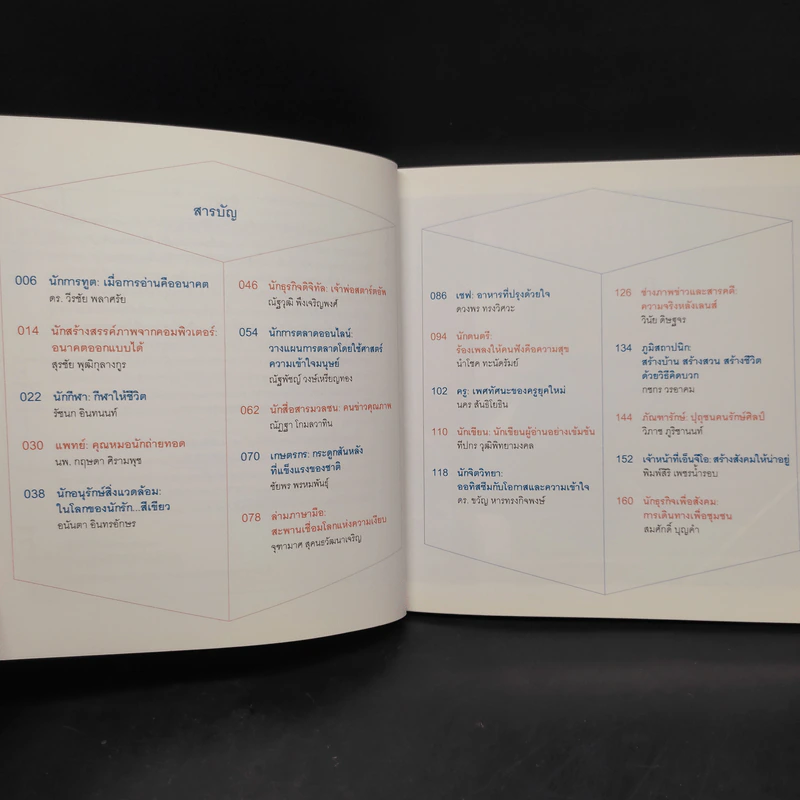 สารบัญ
006 นักการทูต: เมื่อการอ่านคืออนาคต
ดร. วีรชัย พลาศรัย
014 นักสร้างสรรค์ภาพจากคอมพิวเตอร์:
อนาคตออกแบบได้
สุรชัย พุฒิกุลางกูร
022 นักกีฬา: กีฬาให้ชีวิต
รัชนก อินทนนท์
030 แพทย์: คุณหมอนักถ่ายทอด
นพ. กฤษดา ศิรามพุช
038 นักอนุรักษ์สิ่งแวดล้อม:
ในโลกของนักรัก...สีเขียว
อนันตา อินทรอักษร
046 นักธุรกิจดิจิทัล: เจ้าพ่อสตาร์ตอัล
ณัฐวุฒิ พึงเจริญพงศ์
054 นักการตลาดออนไลน์:
วางแผนการตลาดโดยใช้ศาสตร์
ความเข้าใจมนุษย์
ณัฐพัชญ์ วงษ์เหรียญทอง
062 นักสื่อสารมวลชน: คนข่าวคุณภาพ
ณัฏฐา โกมลวาทิน
070 เกษตรกร: กระดูกสันหลัง
ที่แข็งแรงของชาติ
ชัยพร พรหมพันธุ์
078 ล่ามภาษามือ:
สะพานเชื่อมโลกแห่งความเงียบ
จุฑามาศ สุคนธวัฒนาเจริญ
086 เชฟ: อาหารที่ปรุงด้วยใจ
ดวงพร ทรงวิศวะ
094 นักดนตรี:
ร้องเพลงให้คนฟังคือความสุข
นำโชค ทะนัดรัมย์
102 ครู: เพศทัศนะของครูยุคใหม่
นคร สันธิโยธิน
110 นักเขียน: นักเขียนผู้อ่านอย่างเข้มข้น
ทีปกร วุฒิพิทยามงคล
118 นักจิตวิทยา:
ออทิสซึมกับโอกาสและความเข้าใจ
ดร. ขวัญ หารทรงกิจพงษ์
126 ช่างภาพข่าวและสารคดี:
ความจริงหลังเลนส์
วินัย ดิษฐจร
134 ภูมิสถาปนิก:
สร้างบ้าน สร้างสวน สร้างชีวิต
ด้วยวิธีคิดบวก
กชกร วรอาคม
144 ภัณฑารักษ์: ปุถุชนคนรักษ์ศิลป์
วิภาช ภูริชานนท์
152 เจ้าหน้าที่เอ็นจีโอ: สร้างสังคมให้น่าอยู่
พิมพ์สิริ เพชรน้ำรอบ
160 นักธุรกิจเพื่อสังคม:
การเดินทางเพื่อชุมชน
สมศักดิ์ บุญคำ